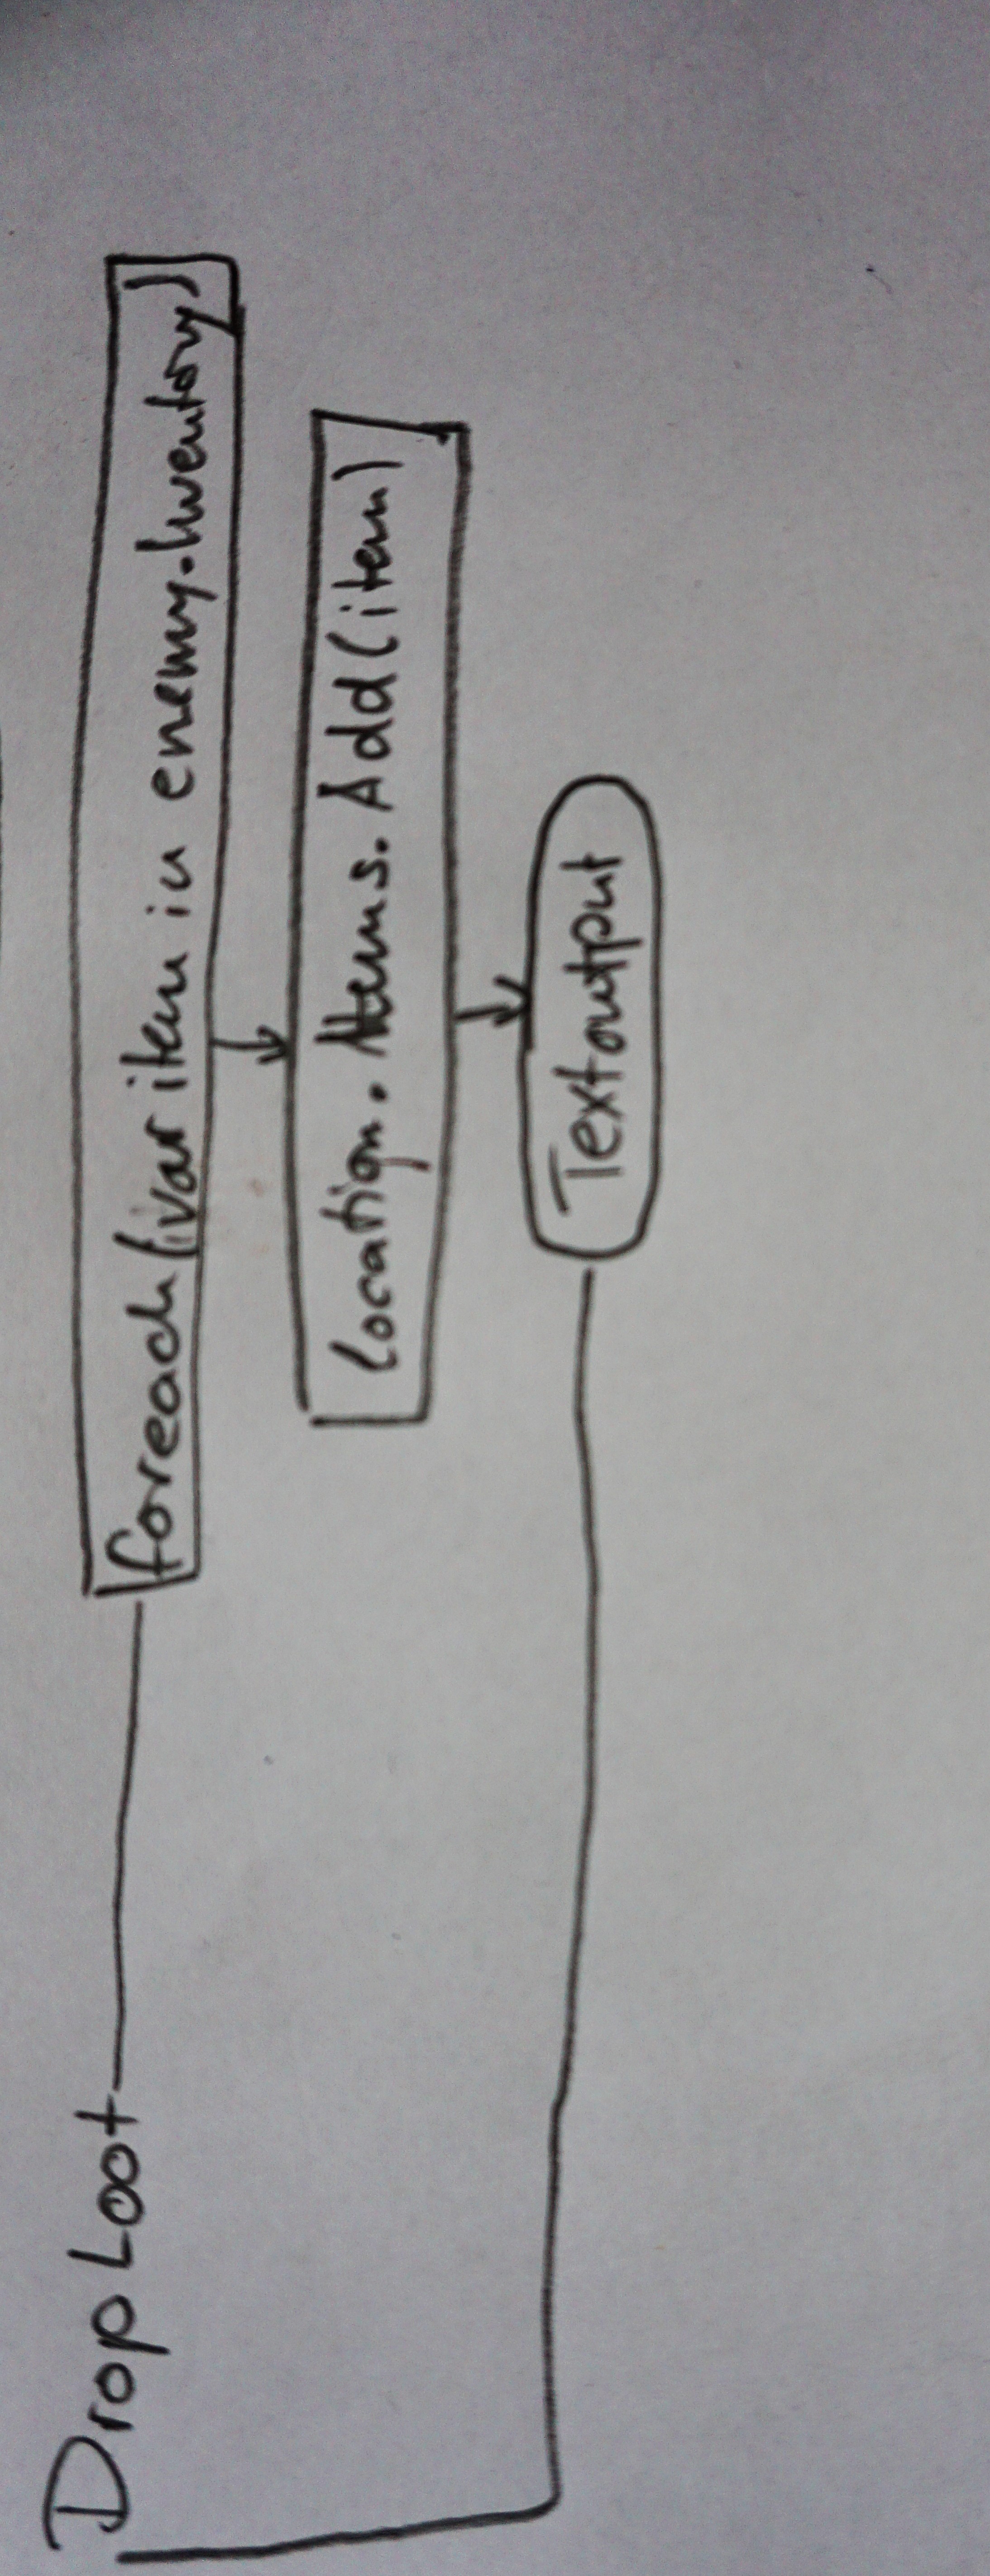 Drop Loot
foreach (var item in enemy.Inventory)
location.Items.Add(item)
Textoutput